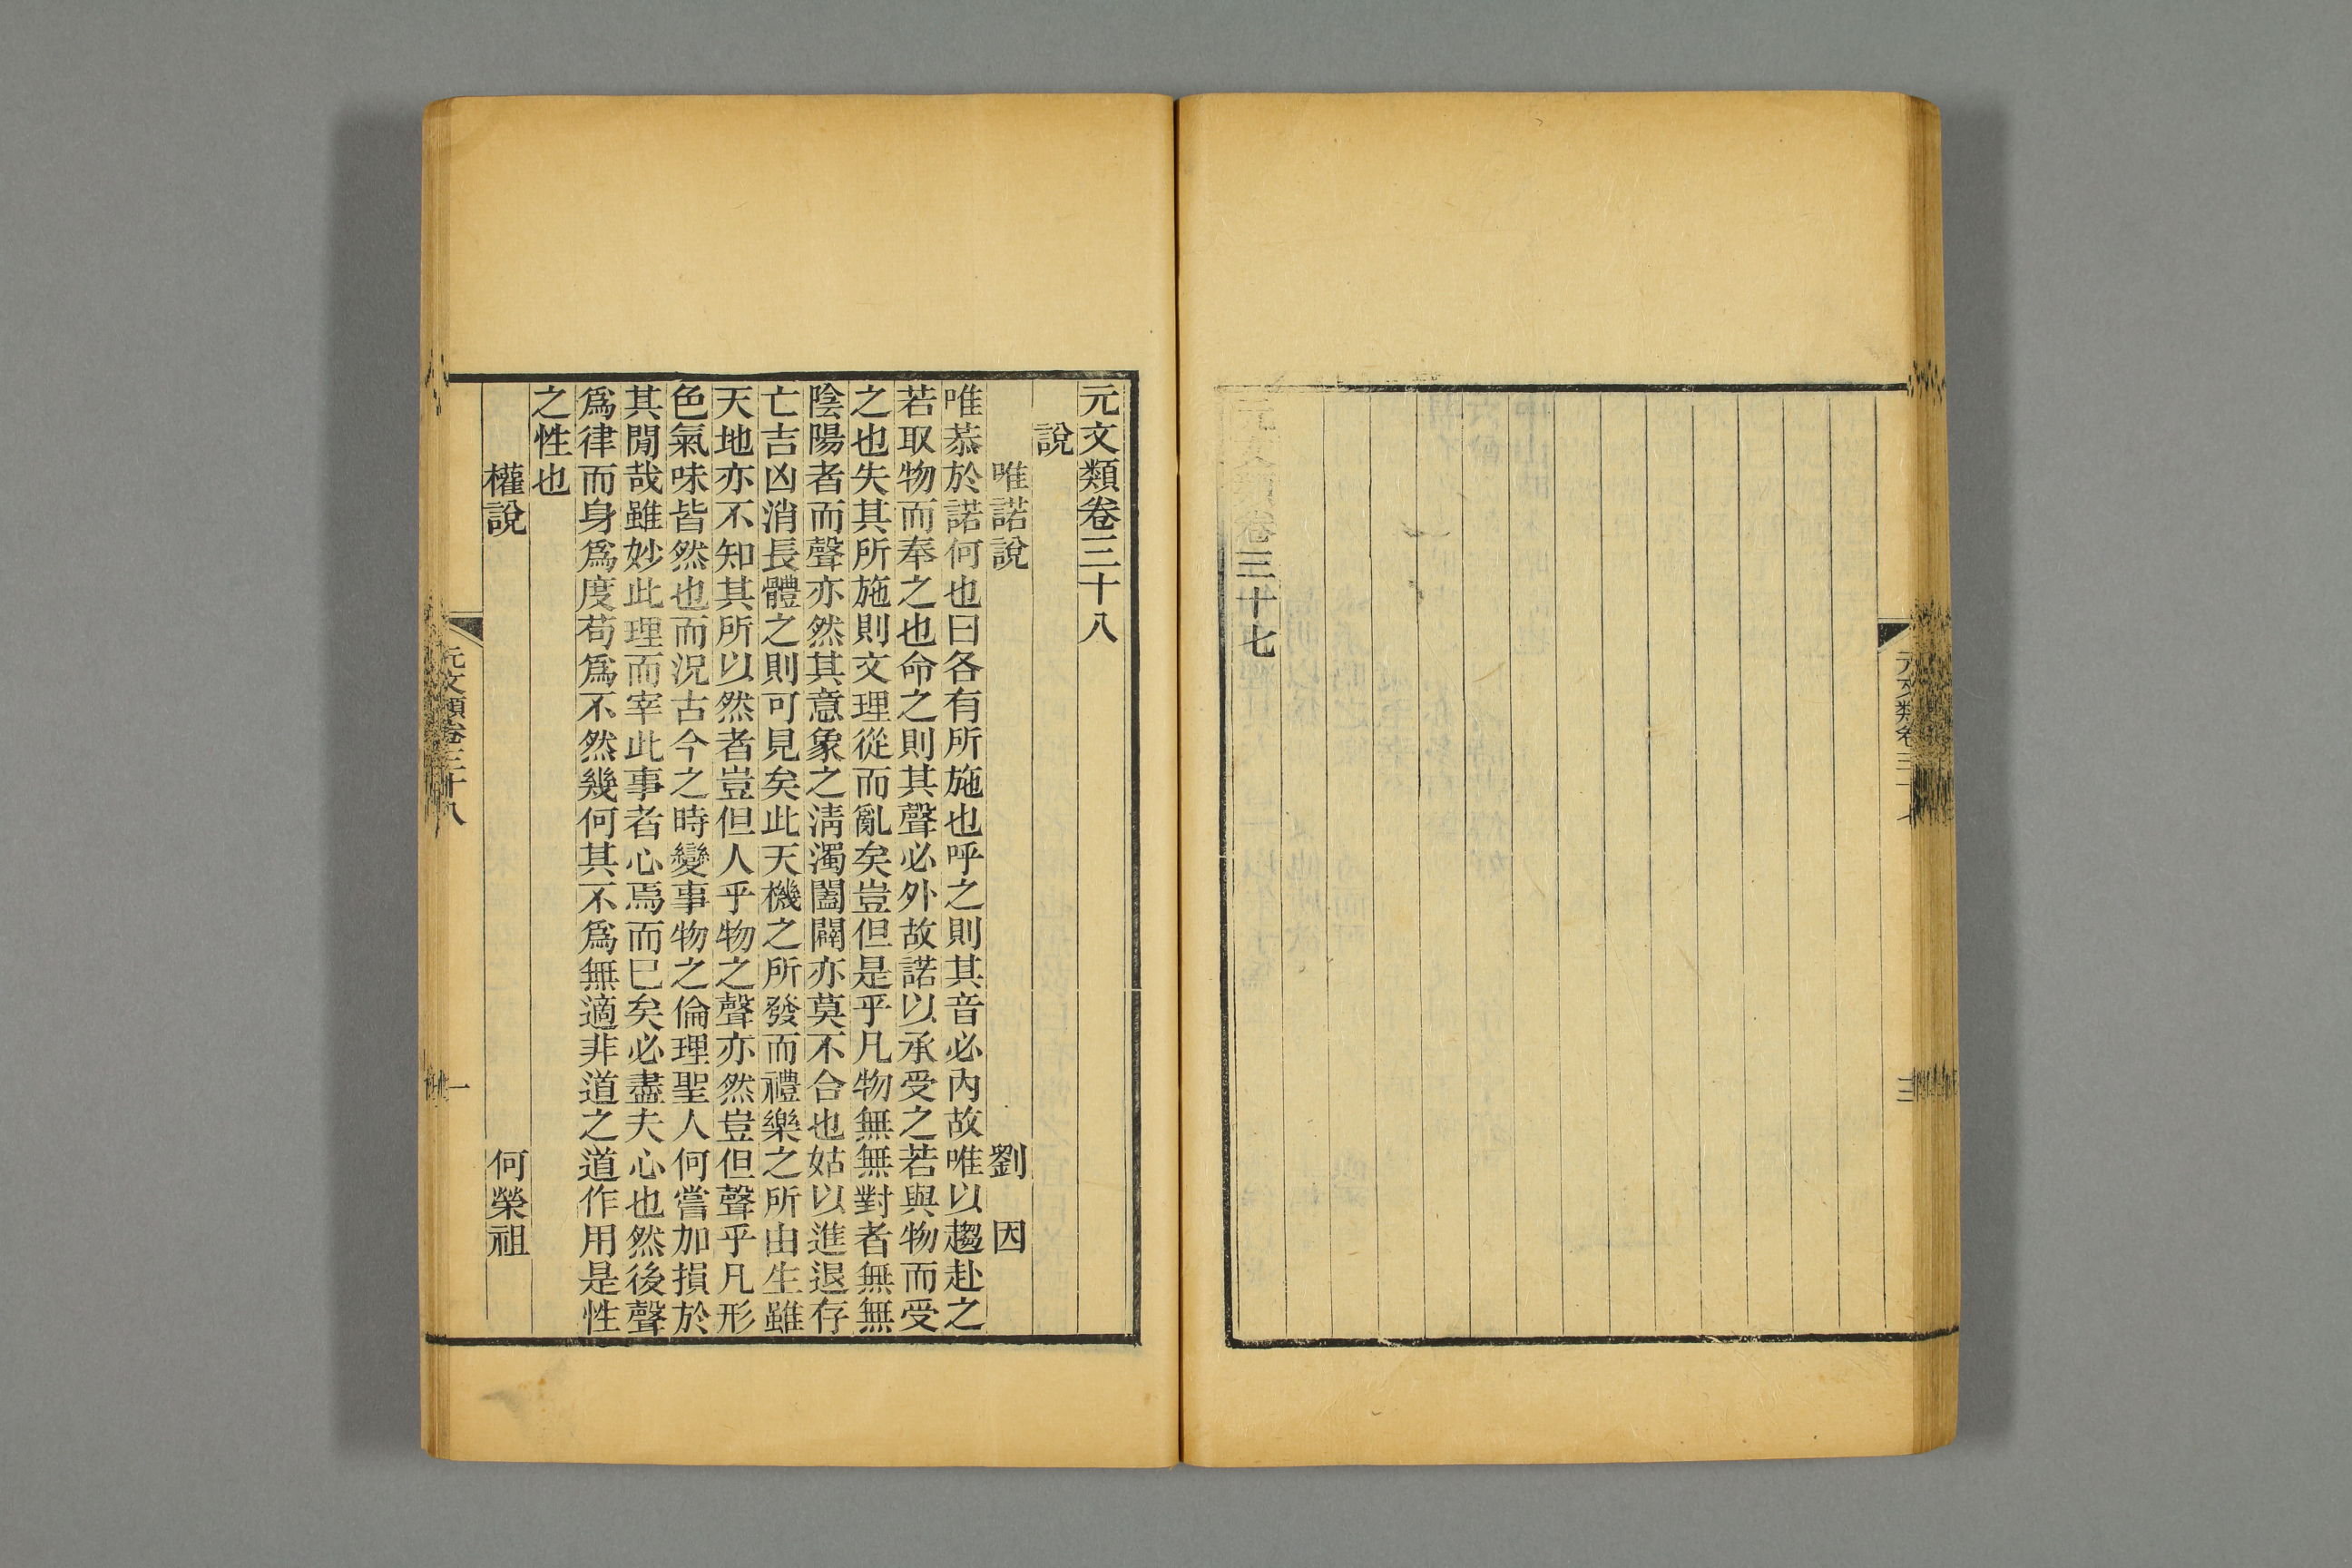 元文類卷三十七
元文類卷三十
三
元文類卷三十八
說
唯諾說 劉因
唯恭於諾何也曰各有所施也呼之則其音必內故唯以趨赴之
若取物而奉之也命之則其聲必外故諾以承受之若與物而受
之也失其所施則文理從而亂矣豈但是乎凡物無無對者無無
陰陽者而聲亦然其意象之清濁闔闢亦莫不合也姑以進退存
亡吉凶消長體之則可見矣此天機之所發而禮樂之所由生雖
天地亦不知其所以然者豈但人乎物之聲亦然豈但聲乎凡形
色氣味皆然也而況古今之時變事物之倫理聖人何嘗加損於
其閒哉雖妙此理而宰此事者心焉而已矣必盡夫心也然後聲
爲律而身爲度苟爲不然幾何其不爲無適非道之道作用是性
之性也
權說 何榮祖
元文類卷三十八
一